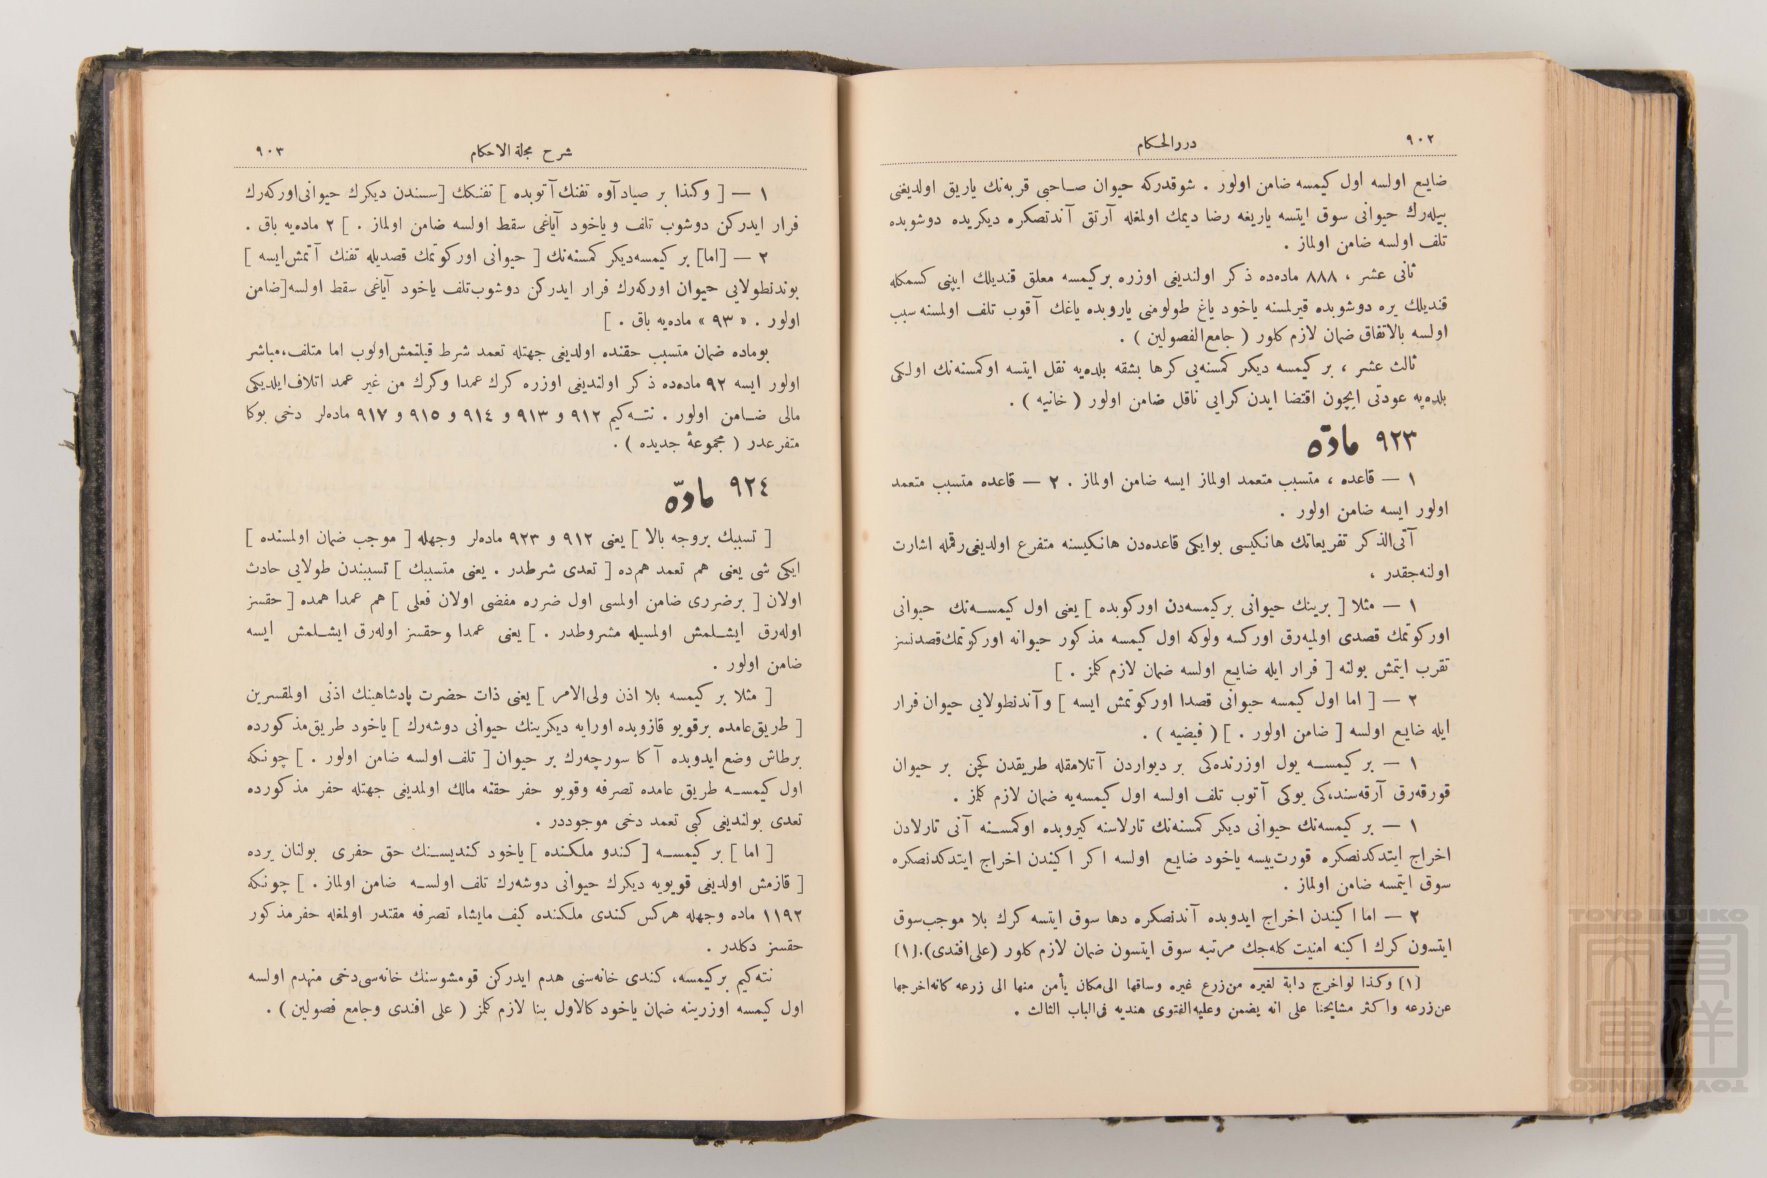 ٩٠٢
دررالحكام
ضايع اولسه اول كيمسه ضامن اولور . شوقدركه حيوان صاحبى قربه‌نك ياريق اولديغنى
بيله‌رك حيوانى سوق ايتسه ياريغه رضا ديمك اولمغله آرتق آندنصكره ديكريده دوشوبده
تلف اولسه ضامن اولماز .
ثانى عشر ، ٨٨٨ ماده‌ده ذكر اولنديغى اوزره بركيمسه معلق قنديلك ايپنى كسمكله
قنديلك يره دوشوبده قيرلمسنه ياخود ياغ طولومنى ياروبده ياغك آقوب تلف اولمسنه سبب
اولسه بالاتفاق ضمان لازم كلور ( جامع‌الفصولين ) .
ثالث عشر ، بر كيمسه ديكر كمسنه‌يى كرها بشقه بلده‌يه نقل ايتسه اوكمسنه‌نك اولكى
بلده‌يه عودتى ايچون اقتضا ايدن كرايى ناقل ضامن اولور ( خانيه ) .
٩٢٣ مادّه
١ — قاعده ، متسبب متعمد اولماز ايسه ضامن اولماز . ٢ — قاعده متسبب متعمد
اولور ايسه ضامن اولور .
آتى‌الذكر تفريعاتك هانكيسى بوايكى قاعده‌دن هانكيسنه متفرع اولديغى رقمله اشارت
اولنه‌جقدر ،
١ — مثلا [ برينك حيوانى بركيمسه‌دن اوركوبده ] يعنى اول كيمسه‌نك حيوانى
اوركوتمك قصدى اولميه‌رق اوركسه ولوكه اول كيمسه مذكور حيوانه اوركوتمك‌قصدنسز
تقرب ايتمش بولنه [ فرار ايله ضايع اولسه ضمان لازم كلمز . ]
٢ — [ اما اول كيمسه حيوانى قصدا اوركوتمش ايسه ] و آندنطولايى حيوان فرار
ايله ضايع اولسه [ ضامن اولور . ] ( فيضيه ) .
١ — بر كيمسه يول اوزرنده‌كى بر ديواردن آتلامقله طريقدن كچن بر حيوان
قورقه‌رق آرقه‌سنده‌كى يوكى آتوب تلف اولسه اول كيمسه‌يه ضمان لازم كلمز .
١ — بر كيمسه‌نك حيوانى ديكر كمسنه‌نك تارلاسنه كيروبده اوكمسنه آنى تارلادن
اخراج ايتدكدنصكره قورت‌ييسه ياخود ضايع اولسه اكر اكيندن اخراج ايتدكدنصكره
سوق ايتمسه ضامن اولماز .
٢ — اما اكيندن اخراج ايدوبده آندنصكره دها سوق ايتسه كرك بلا موجب‌سوق
ايتسون كرك اكينه امنيت كله‌جك مرتبه سوق ايتسون ضمان لازم كلور (على‌افندى).[١]
[١] وكذا لواخرج دابة لغيره من‌زرع غيره وساقها الى‌مكان يأمن منها الى زرعه كانه‌اخرجها
عن‌زرعه واكثر مشايخنا على انه يضمن وعليه‌الفتوى هنديه فى‌الباب الثالث .
شرح مجلة الاحكام
٩٠٣
١ — [ وكذا بر صياد آوه تفنك آتوبده ] تفنكك [ سسندن ديكرك حيوانى‌اوركه‌رك
فرار ايدركن دوشوب تلف و ياخود آياغى سقط اولسه ضامن اولماز . ] ٢ ماده‌يه باق .
٢ — [اما] بر كيمسه‌ديكر كمسنه‌نك [ حيوانى اوركوتمك قصديله تفنك آتمش‌ايسه ]
بوندنطولايى حيوان اوركه‌رك فرار ايدركن دوشوب‌تلف ياخود آياغى سقط اولسه[ضامن
اولور . « ٩٣ » ماده‌يه باق . ]
بوماده ضمان متسبب حقنده اولديغى جهتله تعمد شرط قيلنمش‌اولوب اما متلف،مباشر
اولور ايسه ٩٢ ماده‌ده ذكر اولنديغى اوزره كرك عمدا وكرك من غير عمد اتلاف‌ايلديكى
مالى ضامن اولور . نته‌كيم ٩١٢ و ٩١٣ و ٩١٤ و ٩١٥ و ٩١٧ ماده‌لر دخى بوكا
متفرعدر ( مجموعۀ جديده ) .
٩٢٤ مادّه
[ تسببك بروجه بالا ] يعنى ٩١٢ و ٩٢٣ ماده‌لر وجهله [ موجب ضمان اولمسنده ]
ايكى شى يعنى هم تعمد هم‌ده [ تعدى شرطدر . يعنى متسببك ] تسببندن طولايى حادث
اولان [ برضررى ضامن اولمسى اول ضرره مفضى اولان فعلى ] هم عمدا همده [ حقسز
اوله‌رق ايشلمش اولمسيله مشروطدر . ] يعنى عمدا وحقسز اوله‌رق ايشلمش ايسه
ضامن اولور .
[ مثلا بر كيمسه بلا اذن ولى‌الامر ] يعنى ذات حضرت پادشاهينك اذنى اولمقسزين
[ طريق‌عامده برقويو قازوبده اورايه ديكرينك حيوانى دوشه‌رك ] ياخود طريق‌مذكورده
برطاش وضع ايدوبده آكا سورچه‌رك بر حيوان [ تلف اولسه ضامن اولور . ] چونكه
اول كيمسه طريق عامده تصرفه وقويو حفر حقنه مالك اولمديغى جهتله حفر مذكورده
تعدى بولنديغى كبى تعمد دخى موجوددر .
[ اما ] بر كيمسه [ كندو ملكنده ] ياخود كنديسنك حق حفرى بولنان يرده
[ قازمش اولديغى قويويه ديكرك حيوانى دوشه‌رك تلف اولسه ضامن اولماز . ] چونكه
١١٩٢ ماده وجهله هركس كندى ملكنده كيف مايشاء تصرفه مقتدر اولمغله حفرمذكور
حقسز دكلدر .
نته‌كيم بركيمسه، كندى خانه‌سنى هدم ايدركن قومشوسنك خانه‌سى‌دخى منهدم اولسه
اول كيمسه اوزرينه ضمان ياخود كالاول بنا لازم كلمز ( على افندى وجامع فصولين ) .
TOYO BUNKO
東洋文庫
TOYO BUNKO